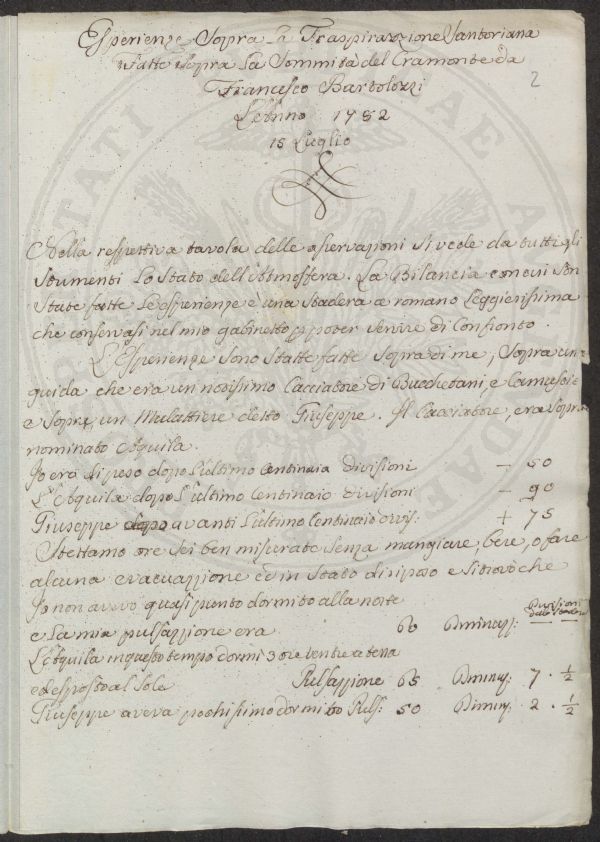 Esperienze Sopra La Traspirazzione Santoriana
Fatte Sopra La Sommità del Cramonte da
Francesco Bartolozzi
L'Anno 1782
15 Luglio
2
Nella respettiva tavola delle osservazioni si vede da tutti gli
Strumenti Lo Stato dell'Atmosfera. La Bilancia con cui son
State fatte L'esperienze e una Stadera a romano Leggierissima
che conservasi nel mio gabinetto p poter servire di Confronto.
L'Esperienze Sono Statte fatte Sopra di me, Sopra una
guida che era un notissimo Cacciatore di Bucchetani, e Camusci
e Sopra un Mulattiere detto Giuseppe. Il Cacciatore, era Sopra
nominato Aquila.
Io ero di peso dopo L'ultimo Centinaia divisioni − 50
L'Aquila dopo L'ultimo Centinaio divisioni − 90
Giuseppe dopo avanti L'ultimo Centinaio divis: + 75
Stettamo ore Sei ben misurate Senza mangiare, bere, o fare
alcuna evacuazzione ed in Stato di riposo e si trovò che
Io non avevo quasi punto dormito alla notte
e La mia pulsazzione era 66 Diminuz: Divisioni
L'Aquila in questo tempo dormì 3 ore ventre a terra
ed esposto al Sole Pulsazzione 65 Diminuz: 7 · 1/2
Giuseppe aveva pochissimo dormito Puls: 50 Diminuz: 2 · 1/2